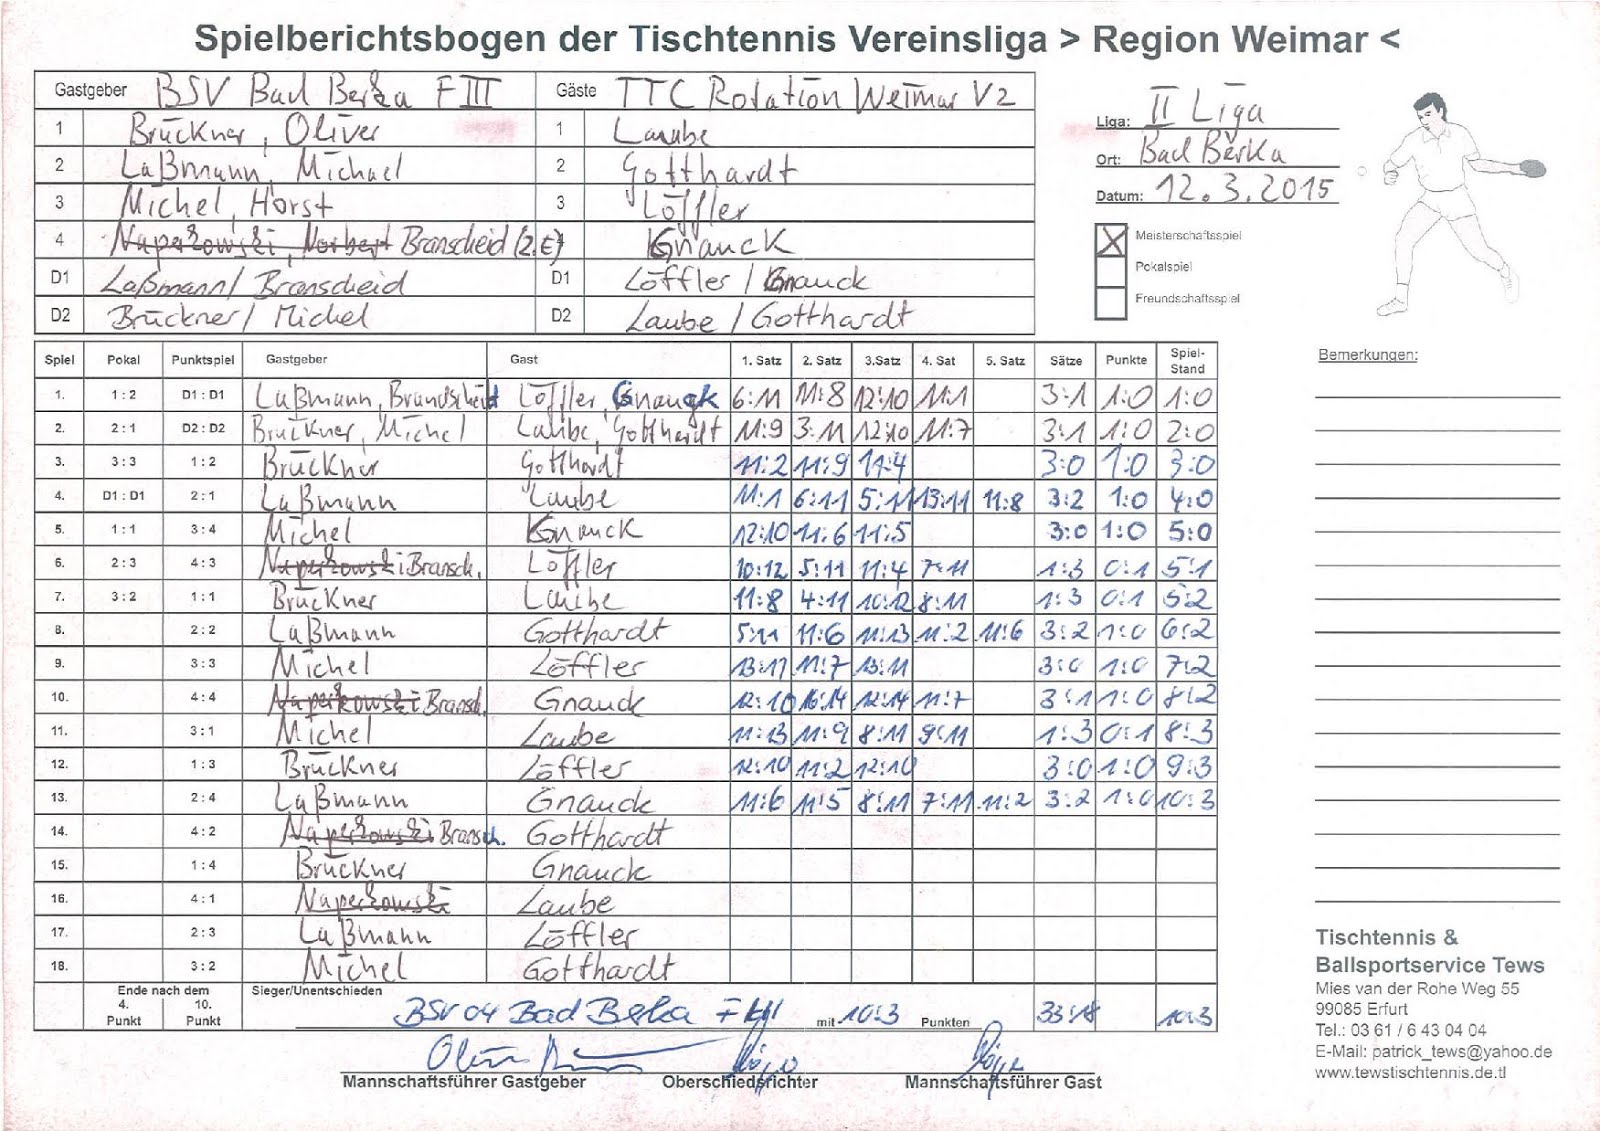 Spielberichtsbogen der Tischtennis Vereinsliga > Region Weimar <
Gastgeber BSV Bad Berka F III Gäste TTC Rotation Weimar V2
1 Brückner, Oliver 1 Laube
2 Laßmann, Michael 2 Gotthardt
3 Michel, Horst 3 Löffler
4 Naperkowski, Norbert Branscheid (2.E) Gnauck
D1 Laßmann/ Branscheid D1 Löffler / Gnauck
D2 Brückner/ Michel D2 Laube / Gotthardt
Liga: II Liga
Ort: Bad Berka
Datum: 12.3.2015
Meisterschaftsspiel
Pokalspiel
Freundschaftsspiel
Spiel Pokal Punktspiel Gastgeber Gast 1. Satz 2. Satz 3.Satz 4. Sat 5. Satz Sätze Punkte Spiel-Stand
1. 1 : 2 D1 : D1 Laßmann, Brandscheid Löffler, Gnauck 6:11 11:8 12:10 11:1 3:1 1:0 1:0
2. 2 : 1 D2 : D2 Brückner, Michel Laube, Gotthardt 11:9 3:11 12:10 11:7 3:1 1:0 2:0
3. 3 : 3 1 : 2 Brückner Gotthardt 11:2 11:9 11:4 3:0 1:0 3:0
4. D1 : D1 2 : 1 Laßmann Laube 11:1 6:11 5:11 13:11 11:8 3:2 1:0 4:0
5. 1 : 1 3 : 4 Michel Gnauck 12:10 11:6 11:5 3:0 1:0 5:0
6. 2 : 3 4 : 3 Naperkowski Bransch. Löffler 10:12 5:11 11:4 7:11 1:3 0:1 5:1
7. 3 : 2 1 : 1 Brückner Laube 11:8 4:11 10:12 8:11 1:3 0:1 5:2
8. 2 : 2 Laßmann Gotthardt 5:11 11:6 11:13 11:2 11:6 3:2 1:0 6:2
9. 3 : 3 Michel Löffler 11:7 13:11 3:0 1:0 7:2
10. 4 : 4 Naperkowski Bransch. Gnauck 12:10 16:14 12:14 11:7 3:1 1:0 8:2
11. 3 : 1 Michel Laube 11:13 11:9 8:11 9:11 1:3 0:1 8:3
12. 1 : 3 Brückner Löffler 12:10 11:2 12:10 3:0 1:0 9:3
13. 2 : 4 Laßmann Gnauck 11:6 11:5 8:11 7:11 11:2 3:2 1:0 10:3
14. 4 : 2 Naperkowski Bransch. Gotthardt
15. 1 : 4 Brückner Gnauck
16. 4 : 1 Naperkowski Laube
17. 2 : 3 Laßmann Löffler
18. 3 : 2 Michel Gotthardt
Ende nach dem
4. Punkt 10. Punkt
Sieger/Unentschieden
BSV 04 Bad Berka mit 10:3 Punkten 33:18 10:3
Mannschaftsführer Gastgeber Oberschiedsrichter Mannschaftsführer Gast
Bemerkungen:
Tischtennis &
Ballsportservice Tews
Mies van der Rohe Weg 55
99085 Erfurt
Tel.: 03 61 / 6 43 04 04
E-Mail: patrick_tews@yahoo.de
www.tewstischtennis.de.tl